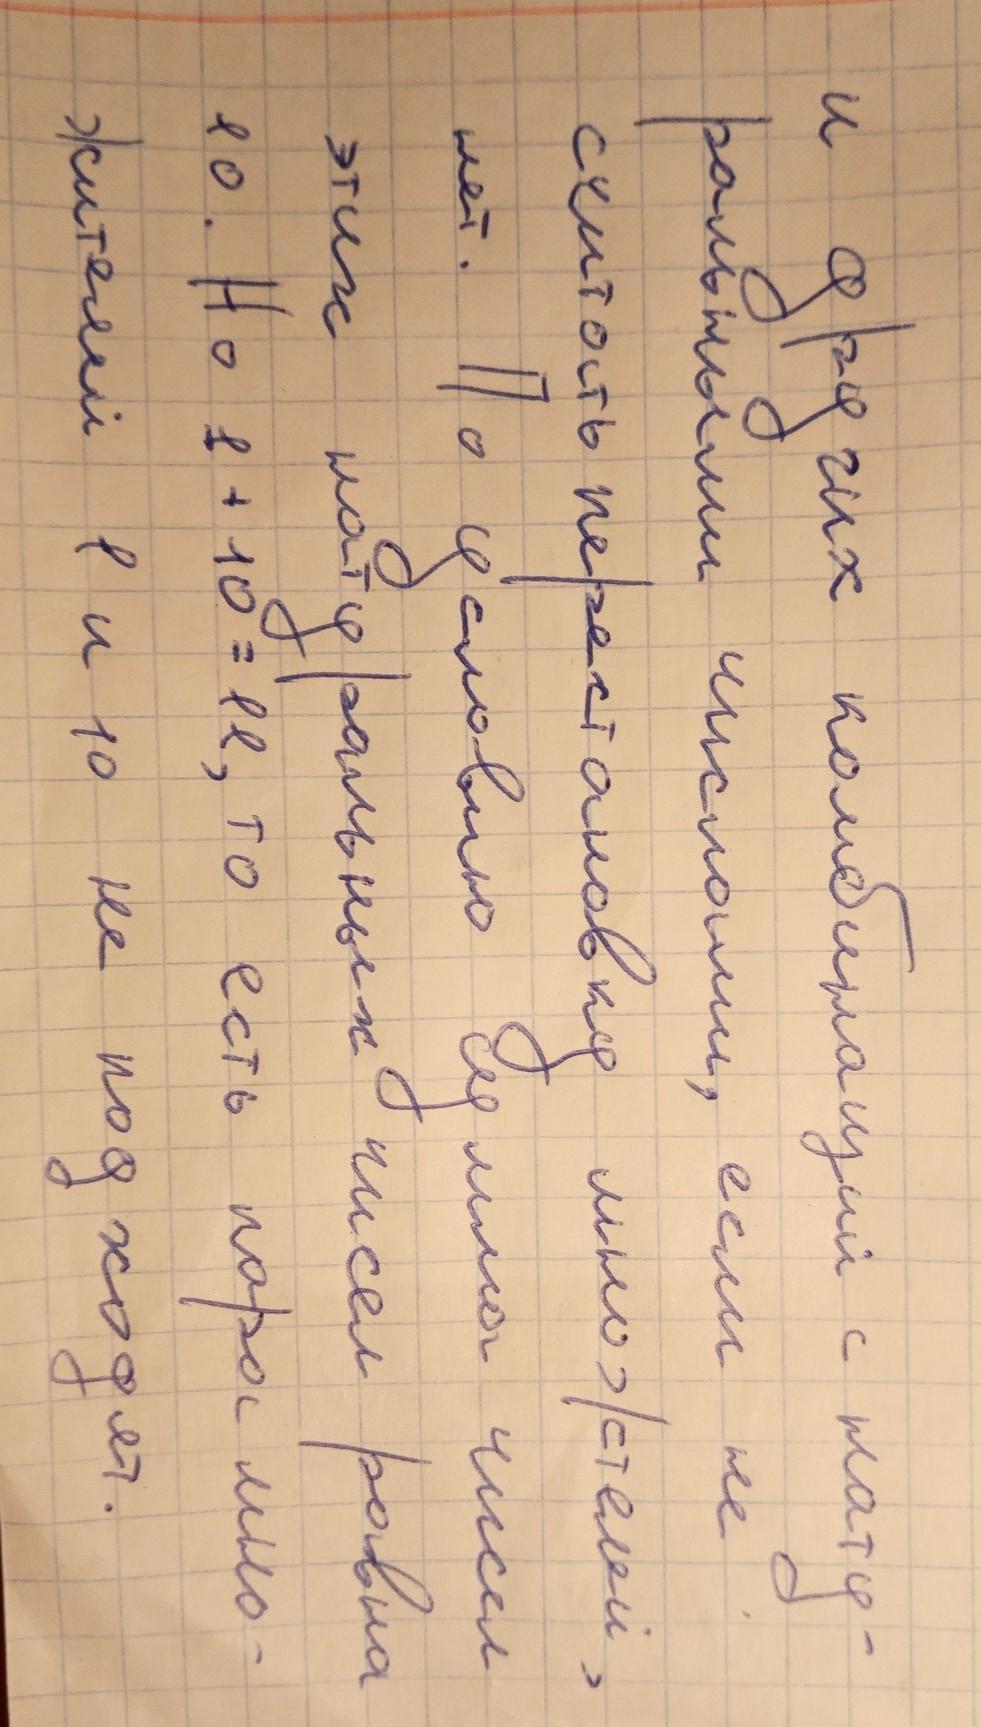 и других комбинаций с нату-
ральными числами, если не
считать перестановку множителей,
нет. По условию сумма чисел
этих натуральных чисел равна
10. Но 1+10=11, то есть пара мно-
жителей 1 и 10 не подходят.